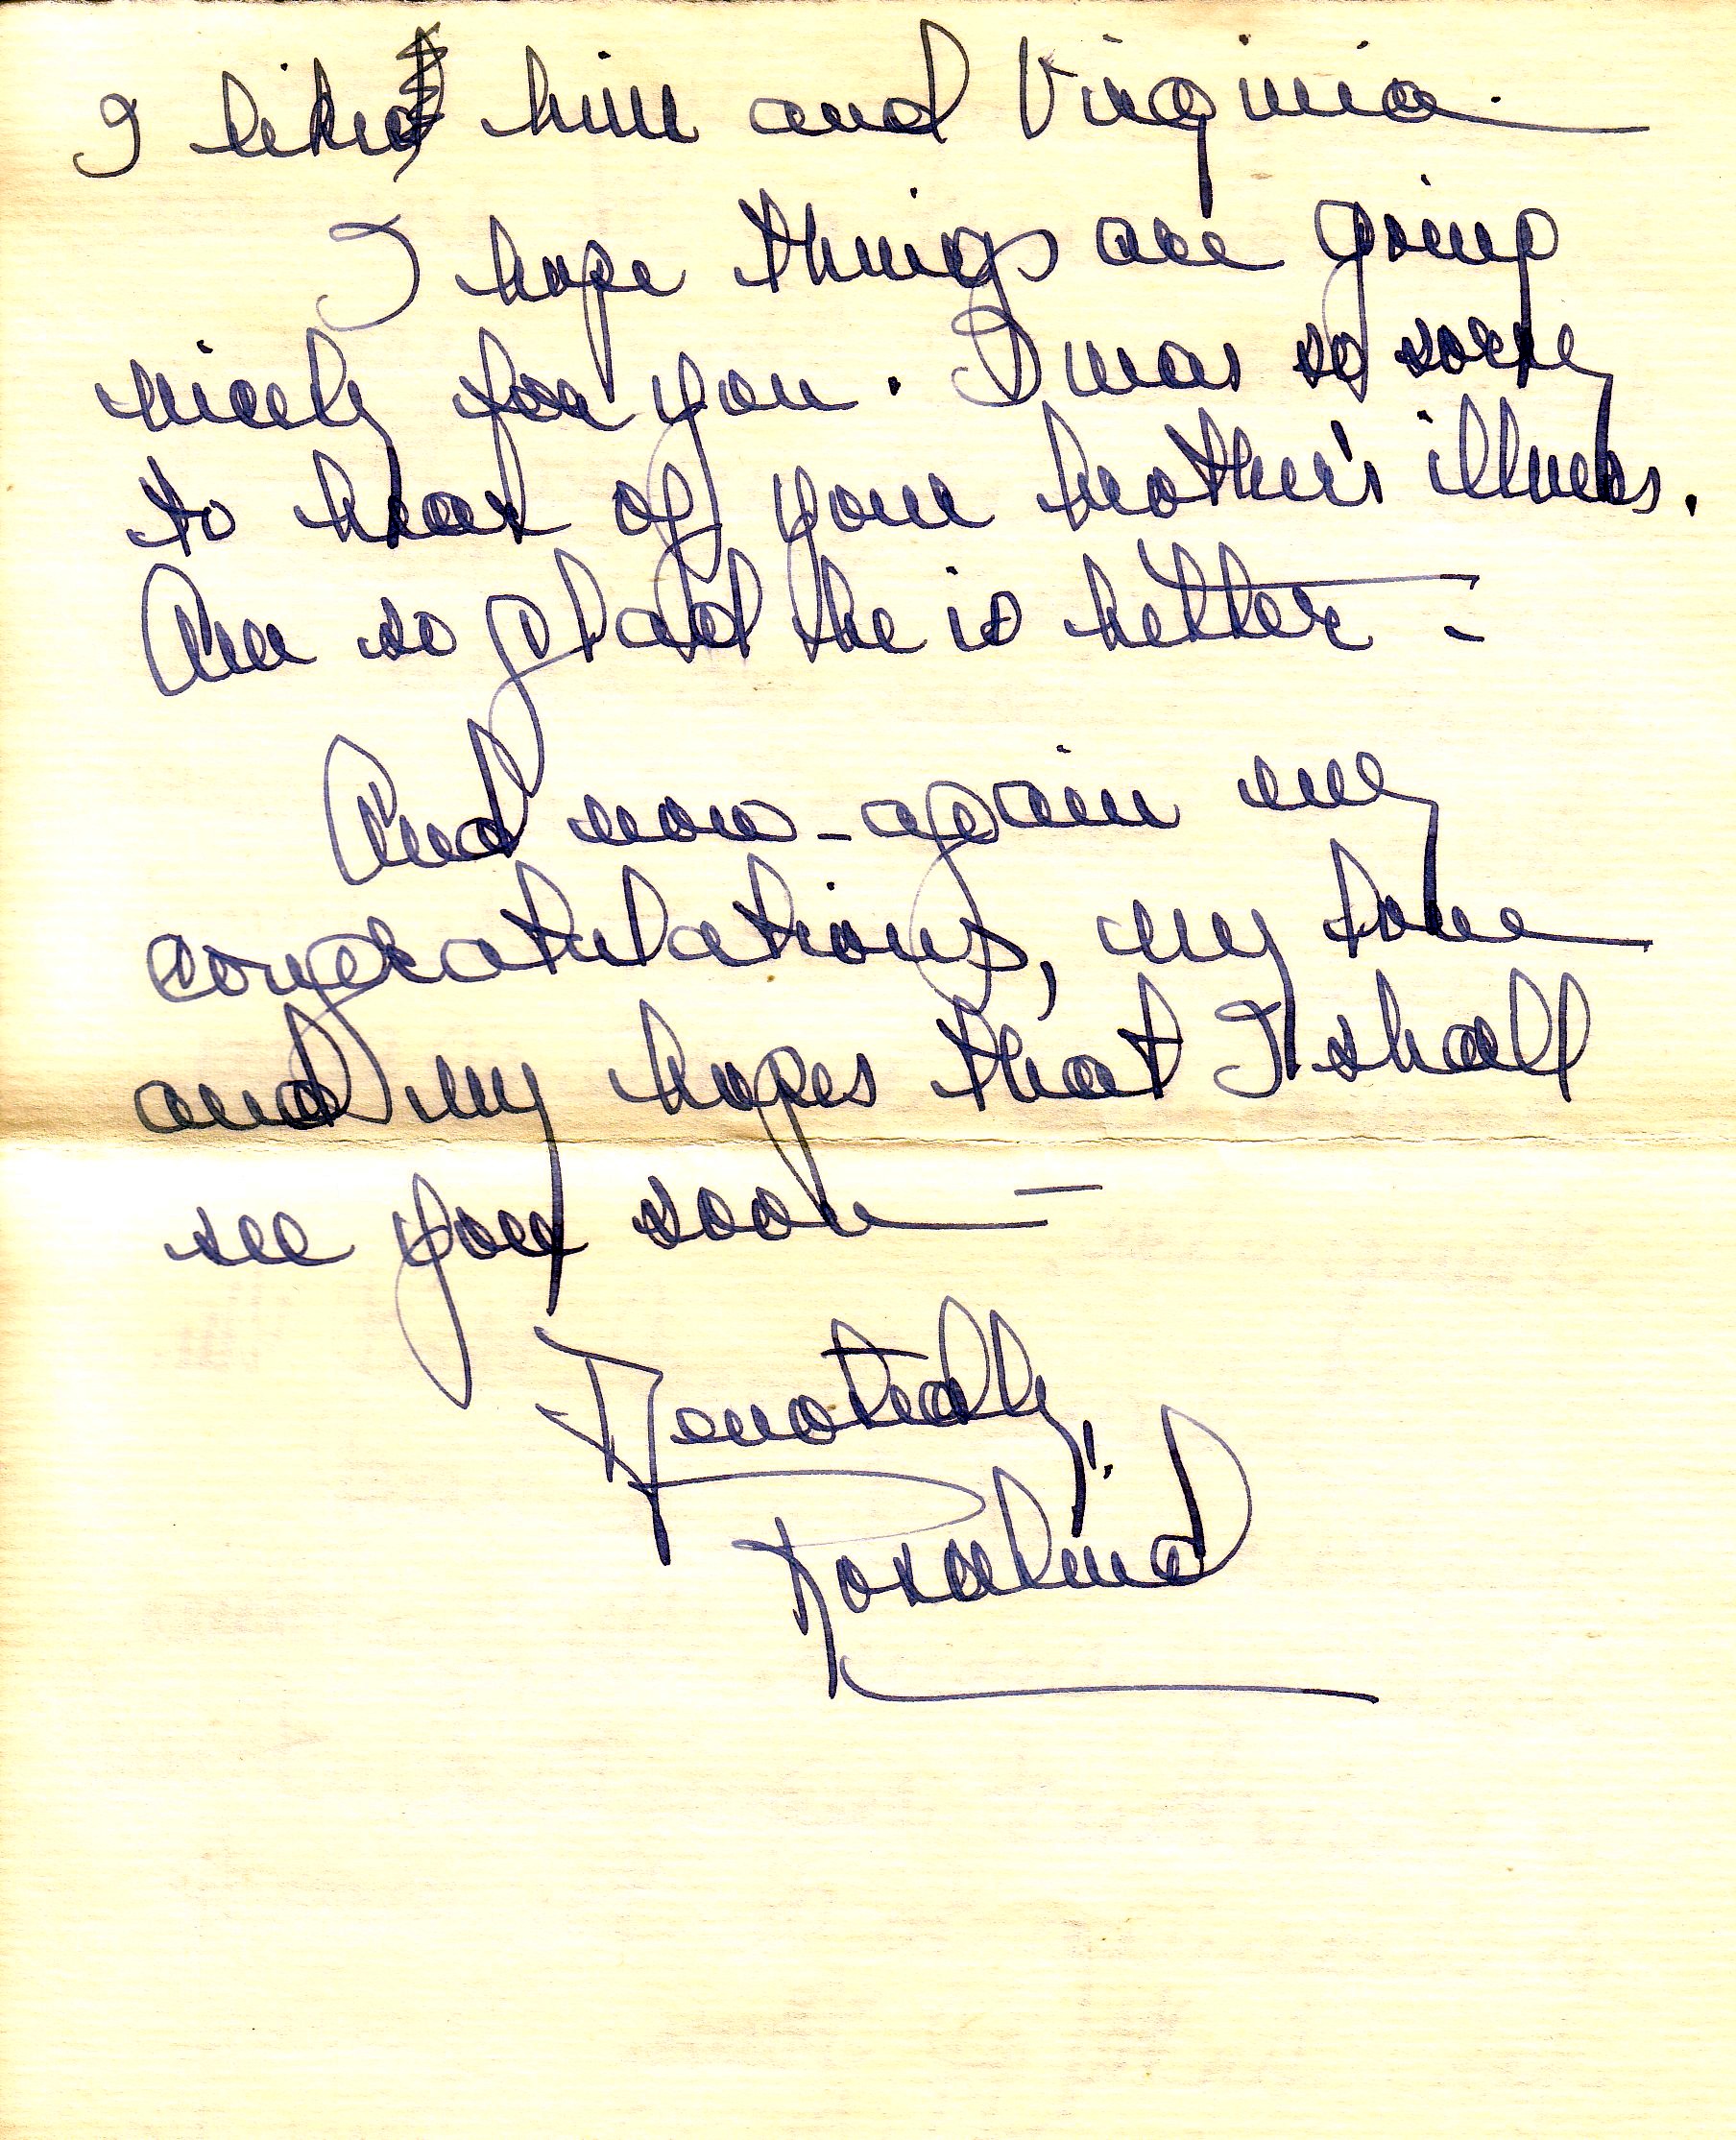 I like him and Virginia.
I hope things are going
nicely for you. I was so sorry
to hear of your brother's illness.
Am so glad he is better -
And now - again my
congratulations, my love
and my hopes that I shall
see you soon -
Devotedly,
Rosalind